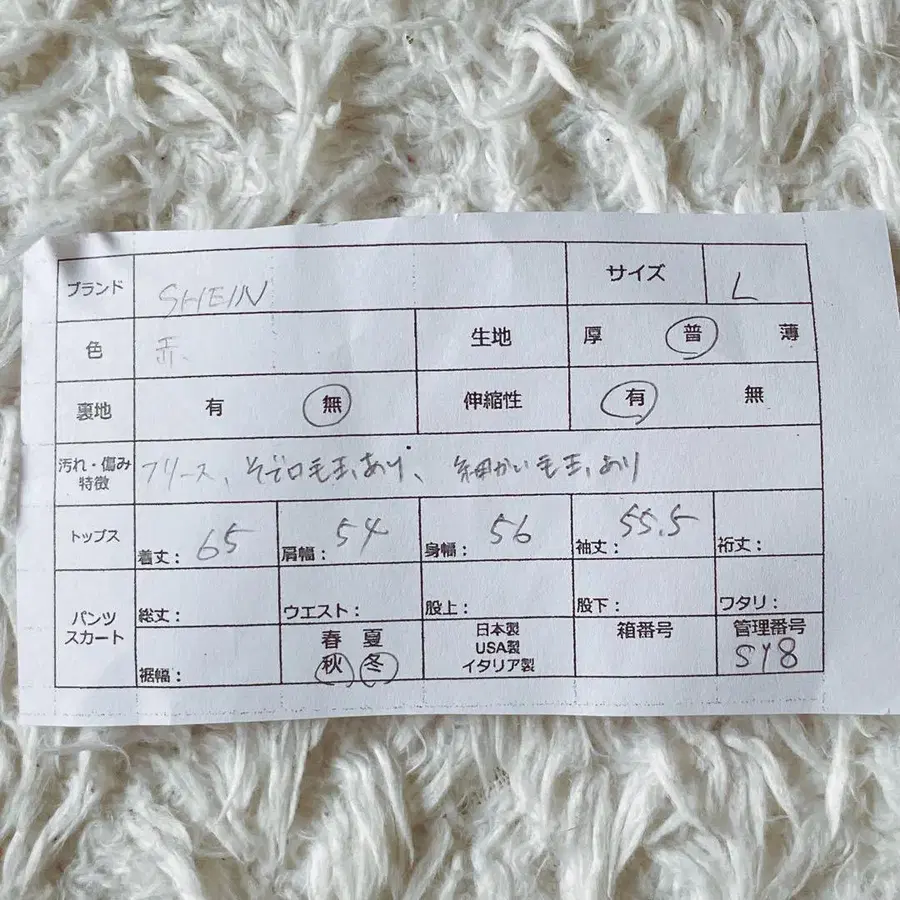 ブランド SHEIN サイズ L
色 赤 生地 厚 普 薄
裏地 有 無 伸縮性 有 無
汚れ・傷み
特徴 フリース、そで口毛玉あり、細かい毛玉あり
トップス 着丈: 65 肩幅: 54 身幅: 56 袖丈: 55.5 裄丈:
パンツ
スカート
総丈: ウエスト: 股上: 股下: ワタリ:
裾幅:
春 夏
秋 冬
日本製
USA製
イタリア製
箱番号
管理番号
SY8